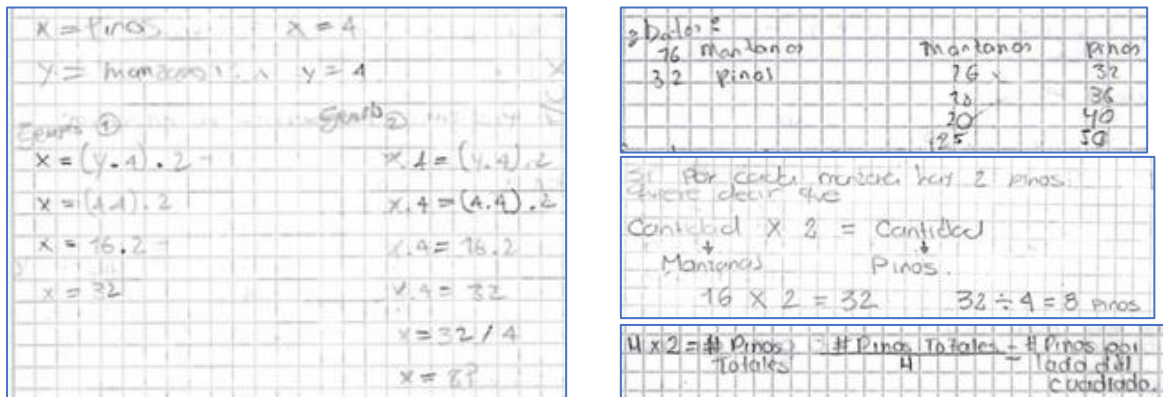 x = Pinos x = 4
y = manzanos y = 4
Grupo ①
x = (y.4).2
x = (4.4).2
x = 16.2
x = 32
②
x.4 = (y.4).2
x.4 = (4.4).2
x.4 = 16.2
x.4 = 32
x = 32/4
x = 8?
Datos:
16 manzanos
32 pinos
manzanos pinos
16 32
18 36
20 40
25 50
Si por cada manzana hay 2 pinos.
quiere decir que
Cantidad x 2 = Cantidad
↓ ↓
Manzanas Pinos.
16 x 2 = 32 32 ÷ 4 = 8 pinos
# Pinos Totales
# Pinos Totales
4
# Pinos por lado del cuadrado.